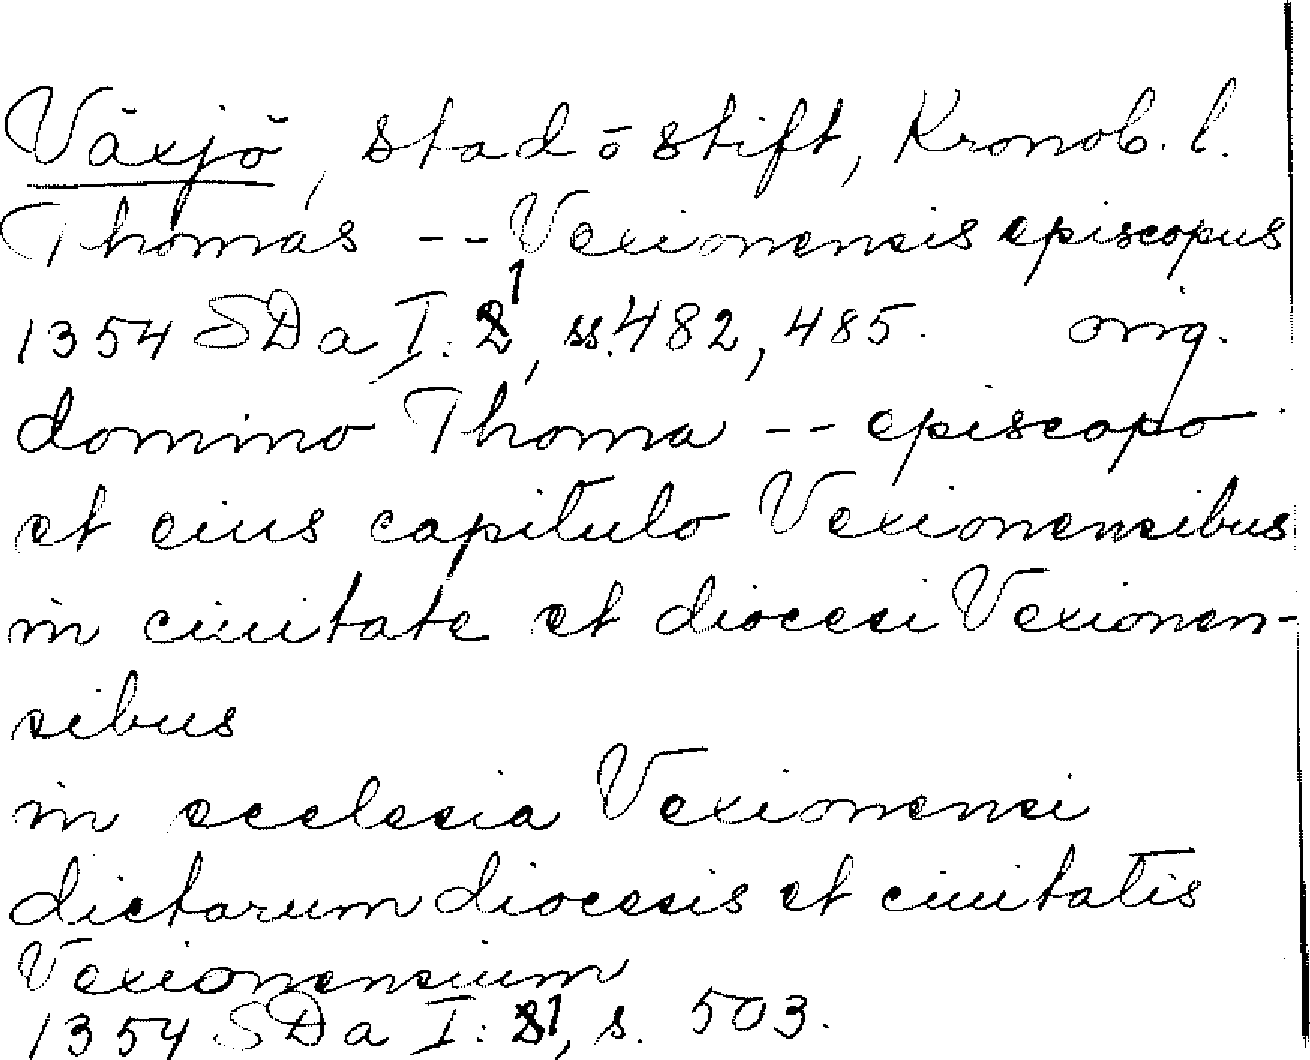 Växjö, stad o stift, Kronob. l.
Thomas -- Vexionensis episcopus
1354 SDa I:1, ss. 482, 485. orig.
domino Thoma -- episcopo
et eius capitulo Vexionensibus
in ciuitate et diocesi Vexionen-
sibus
in ecclesia Vexionensi
dictarum diocesis et ciuitatis
Vexionensium
1354 SDa I:1, s. 503.